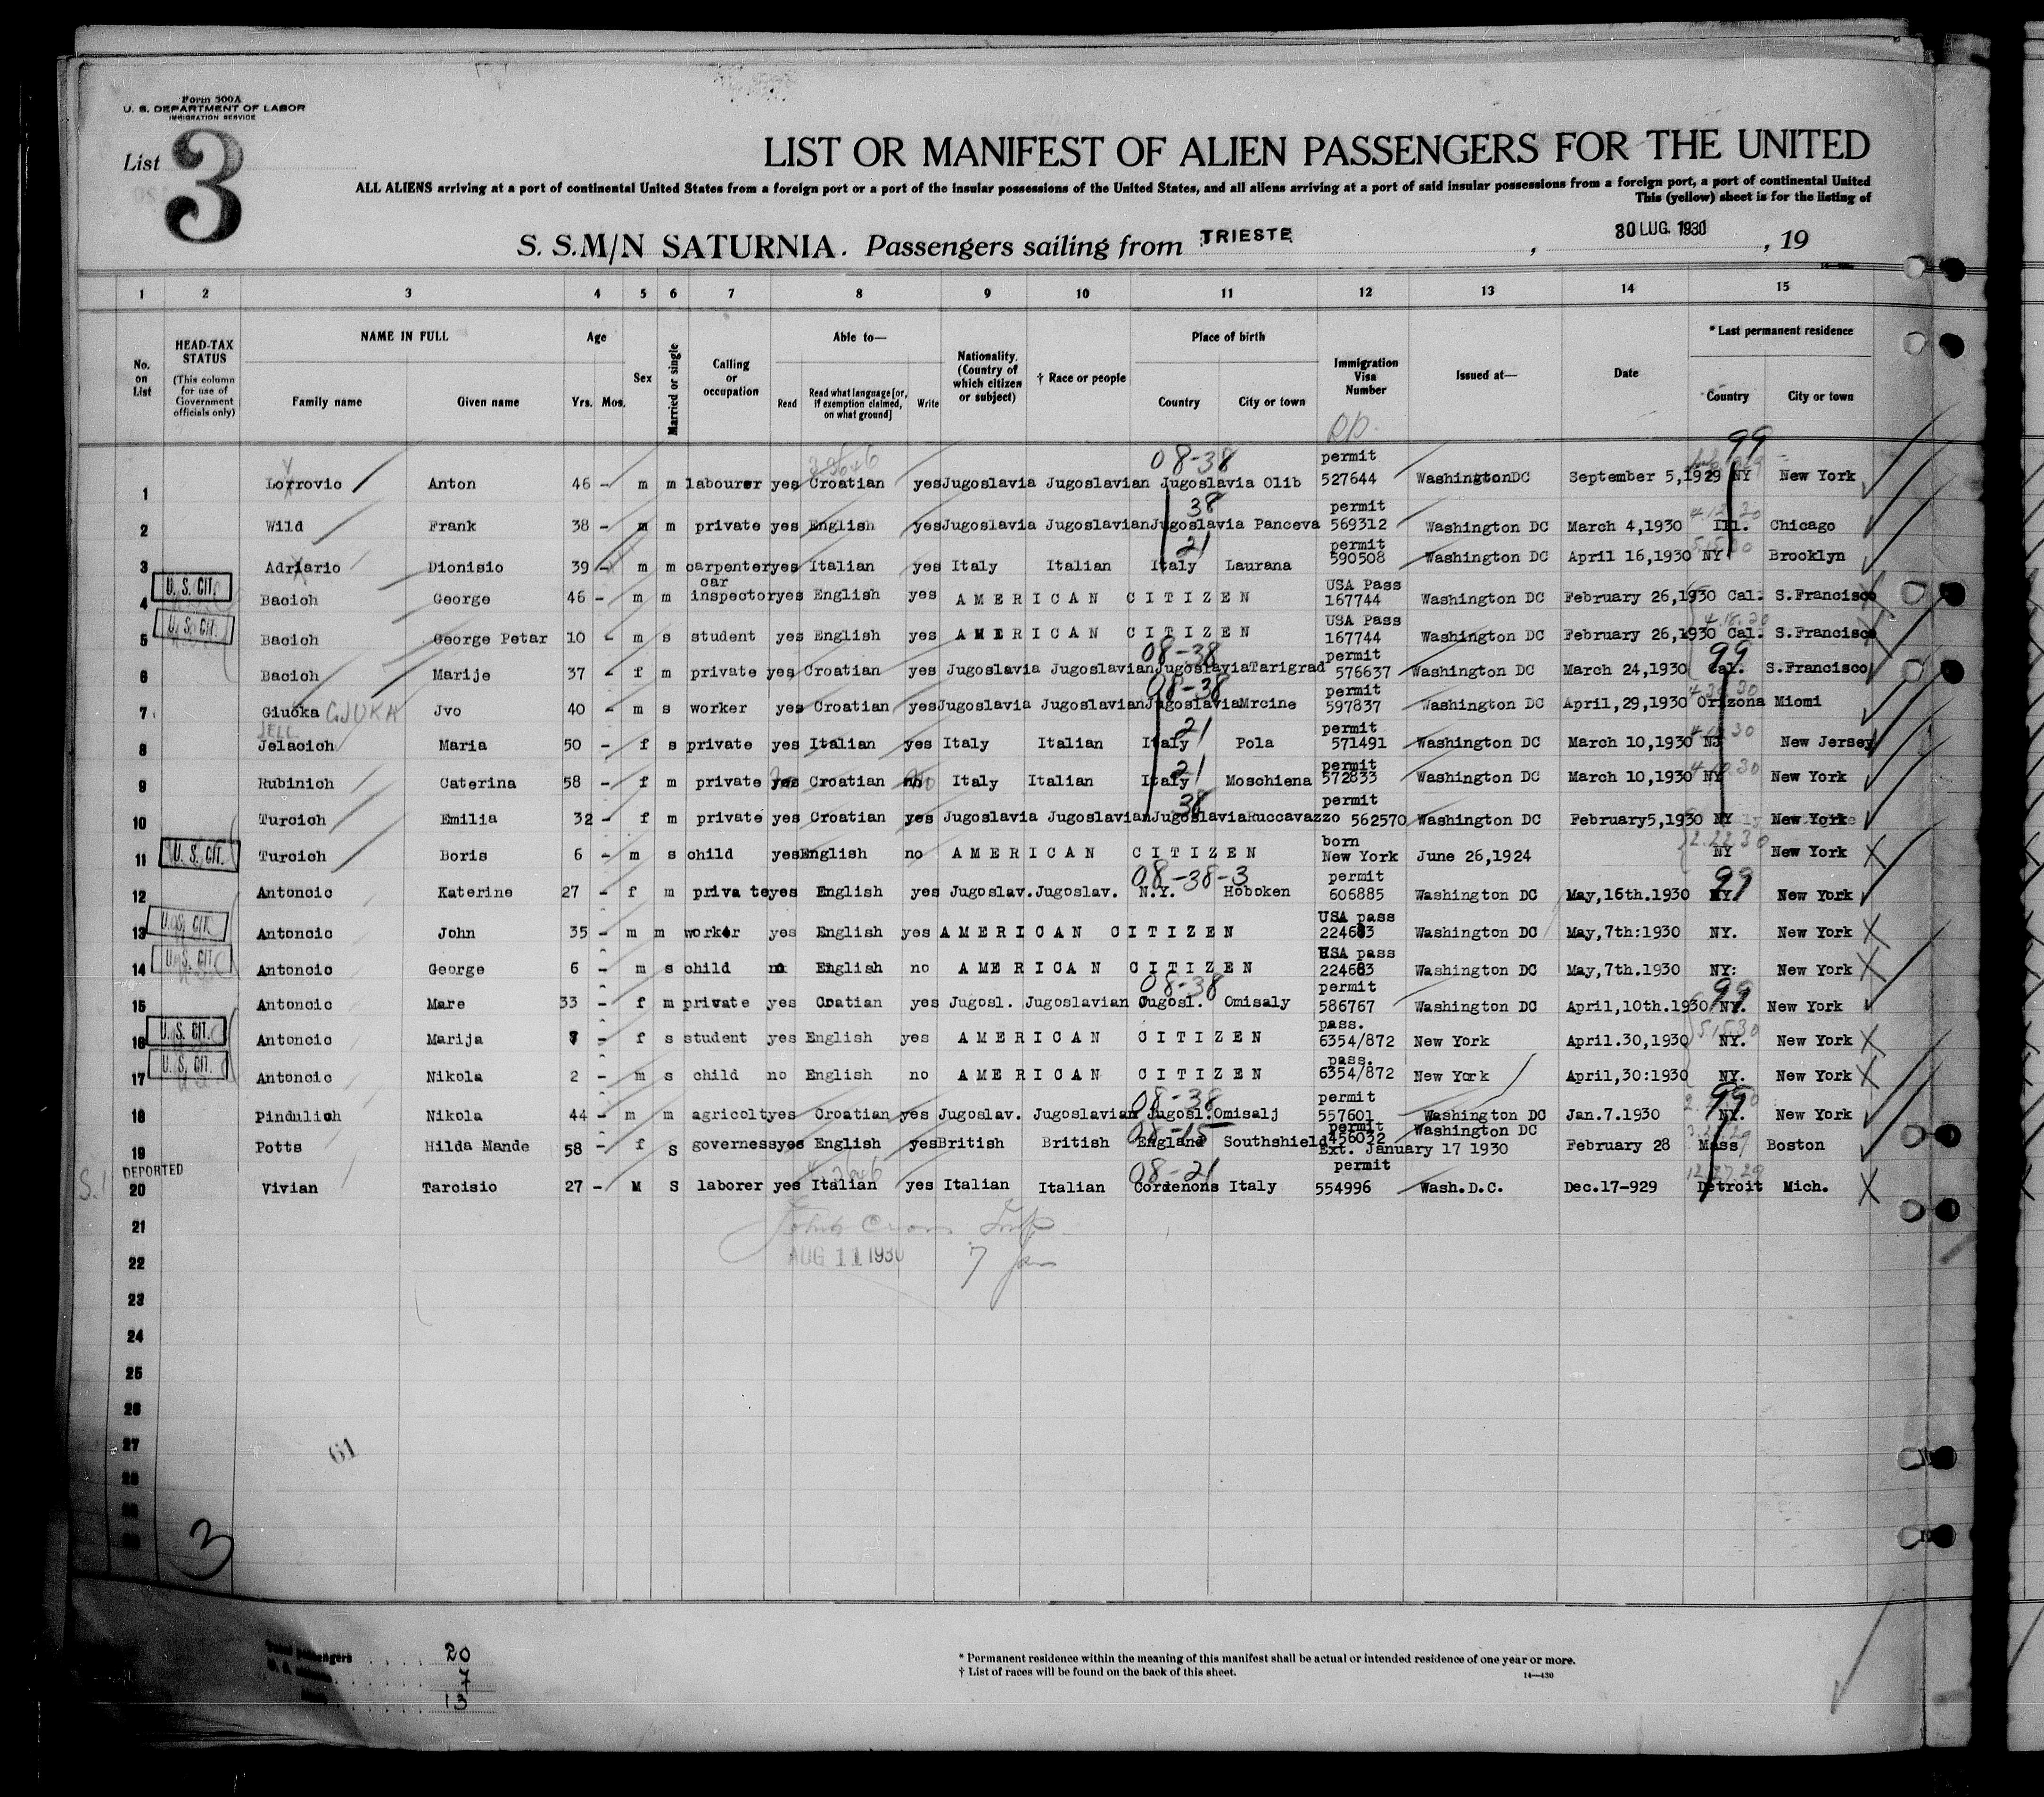 Form 500A
U. S. DEPARTMENT OF LABOR
IMMIGRATION SERVICE
List 3
LIST OR MANIFEST OF ALIEN PASSENGERS FOR THE UNITED
ALL ALIENS arriving at a port of continental United States from a foreign port or a port of the insular possessions of the United States, and all aliens arriving at a port of said insular possessions from a foreign port, a port of continental United
This (yellow) sheet is for the listing of
S. S. M/N SATURNIA. Passengers sailing from TRIESTE, 30 LUG. 1930, 19
1 2 3 4 5 6 7 8 9 10 11 12 13 14 15
No. on List
HEAD-TAX STATUS (This column for use of Government officials only)
NAME IN FULL
Family name Given name
Age Yrs. Mos.
Sex
Married or single
Calling or occupation
Able to—
Read Read what language [or, if exemption claimed, on what ground] Write
Nationality. (Country of which citizen or subject)
† Race or people
Place of birth
Country City or town
Immigration Visa Number
Issued at—
Date
* Last permanent residence
Country City or town
08-38 permit 99
1 Lorrovic Anton 46 - m m labourer yes Croatian yes Jugoslavia Jugoslavian Jugoslavia Olib 527644 WashingtonDC September 5,1929 NY New York
38 permit
2 Wild Frank 38 - m m private yes English yes Jugoslavia Jugoslavian Jugoslavia Panceva 569312 Washington DC March 4,1930 Ill. Chicago
21 permit
3 Adriario Dionisio 39 - m m carpenter yes Italian yes Italy Italian Italy Laurana 590508 Washington DC April 16,1930 NY Brooklyn
U. S. CIT. car USA Pass
4 Bacich George 46 - m m inspector yes English yes AMERICAN CITIZEN 167744 Washington DC February 26,1930 Cal. S.Francisco
U. S. CIT. USA Pass 4.18.30
5 Bacich George Petar 10 - m s student yes English yes AMERICAN CITIZEN 167744 Washington DC February 26,1930 Cal. S.Francisco
08-38 permit 99
6 Bacich Marije 37 - f m private yes Croatian yes Jugoslavia Jugoslavian Jugoslavia Tarigrad 576637 Washington DC March 24,1930 Cal. S.Francisco
08-38 permit
7 Giucka GJUKA Jvo 40 - m s worker yes Croatian yes Jugoslavia Jugoslavian Jugoslavia Mrcine 597837 Washington DC April,29,1930 Orizona Miomi
JELL 21 permit
8 Jelacich Maria 50 - f s private yes Italian yes Italy Italian Italy Pola 571491 Washington DC March 10,1930 NJ New Jersey
21 permit
9 Rubinich Caterina 58 - f m private yes Croatian no Italy Italian Italy Moschiena 572833 Washington DC March 10,1930 NY New York
38 permit
10 Turcich Emilia 32 - f m private yes Croatian yes Jugoslavia Jugoslavian Jugoslavia Ruccavazzo 562570 Washington DC February5,1930 NY New York
U. S. CIT. born 2.22.30
11 Turcich Boris 6 - m s child yes English no AMERICAN CITIZEN New York June 26,1924 NY New York
08-38-3 permit 99
12 Antoncic Katerine 27 - f m private yes English yes Jugoslav. Jugoslav. N.Y. Hoboken 606885 Washington DC May,16th.1930 NY. New York
U. S. CIT. USA pass
13 Antoncic John 35 - m m worker yes English yes AMERICAN CITIZEN 224683 Washington DC May,7th:1930 NY. New York
U. S. CIT. USA pass
14 Antoncic George 6 - m s child no English no AMERICAN CITIZEN 224683 Washington DC May,7th.1930 NY: New York
08-38 permit 99
15 Antoncic Mare 33 - f m private yes Cratian yes Jugosl. Jugoslavian Jugosl. Omisaly 586767 Washington DC April,10th.1930 NY. New York
U. S. CIT. pass. 5.15.30
16 Antoncic Marija f s student yes English yes AMERICAN CITIZEN 6354/872 New York April.30,1930 NY. New York
U. S. CIT. pass.
17 Antoncic Nikola 2 - m s child no English no AMERICAN CITIZEN 6354/872 New York April,30:1930 NY. New York
08-38 permit 99
18 Pindulich Nikola 44 - m m agricolt yes Croatian yes Jugoslav. Jugoslavian Jugosl. Omisalj 557601 Washington DC Jan.7.1930 NY. New York
08-15 permit Washington DC
19 Potts Hilda Mande 58 - f S governess yes English yes British British England Southshield 456032 Ext. January 17 1930 February 28 Mass Boston
DEPORTED 08-21 permit 12.27.29
20 Vivian Tarcisio 27 - M S laborer yes Italian yes Italian Italian Cordenons Italy 554996 Wash.D.C. Dec.17-929 Detroit Mich.
21
22 AUG 11 1930
23
24
25
26
27
28
61
3
Total passengers 20
7
13
* Permanent residence within the meaning of this manifest shall be actual or intended residence of one year or more.
† List of races will be found on the back of this sheet. 14—430